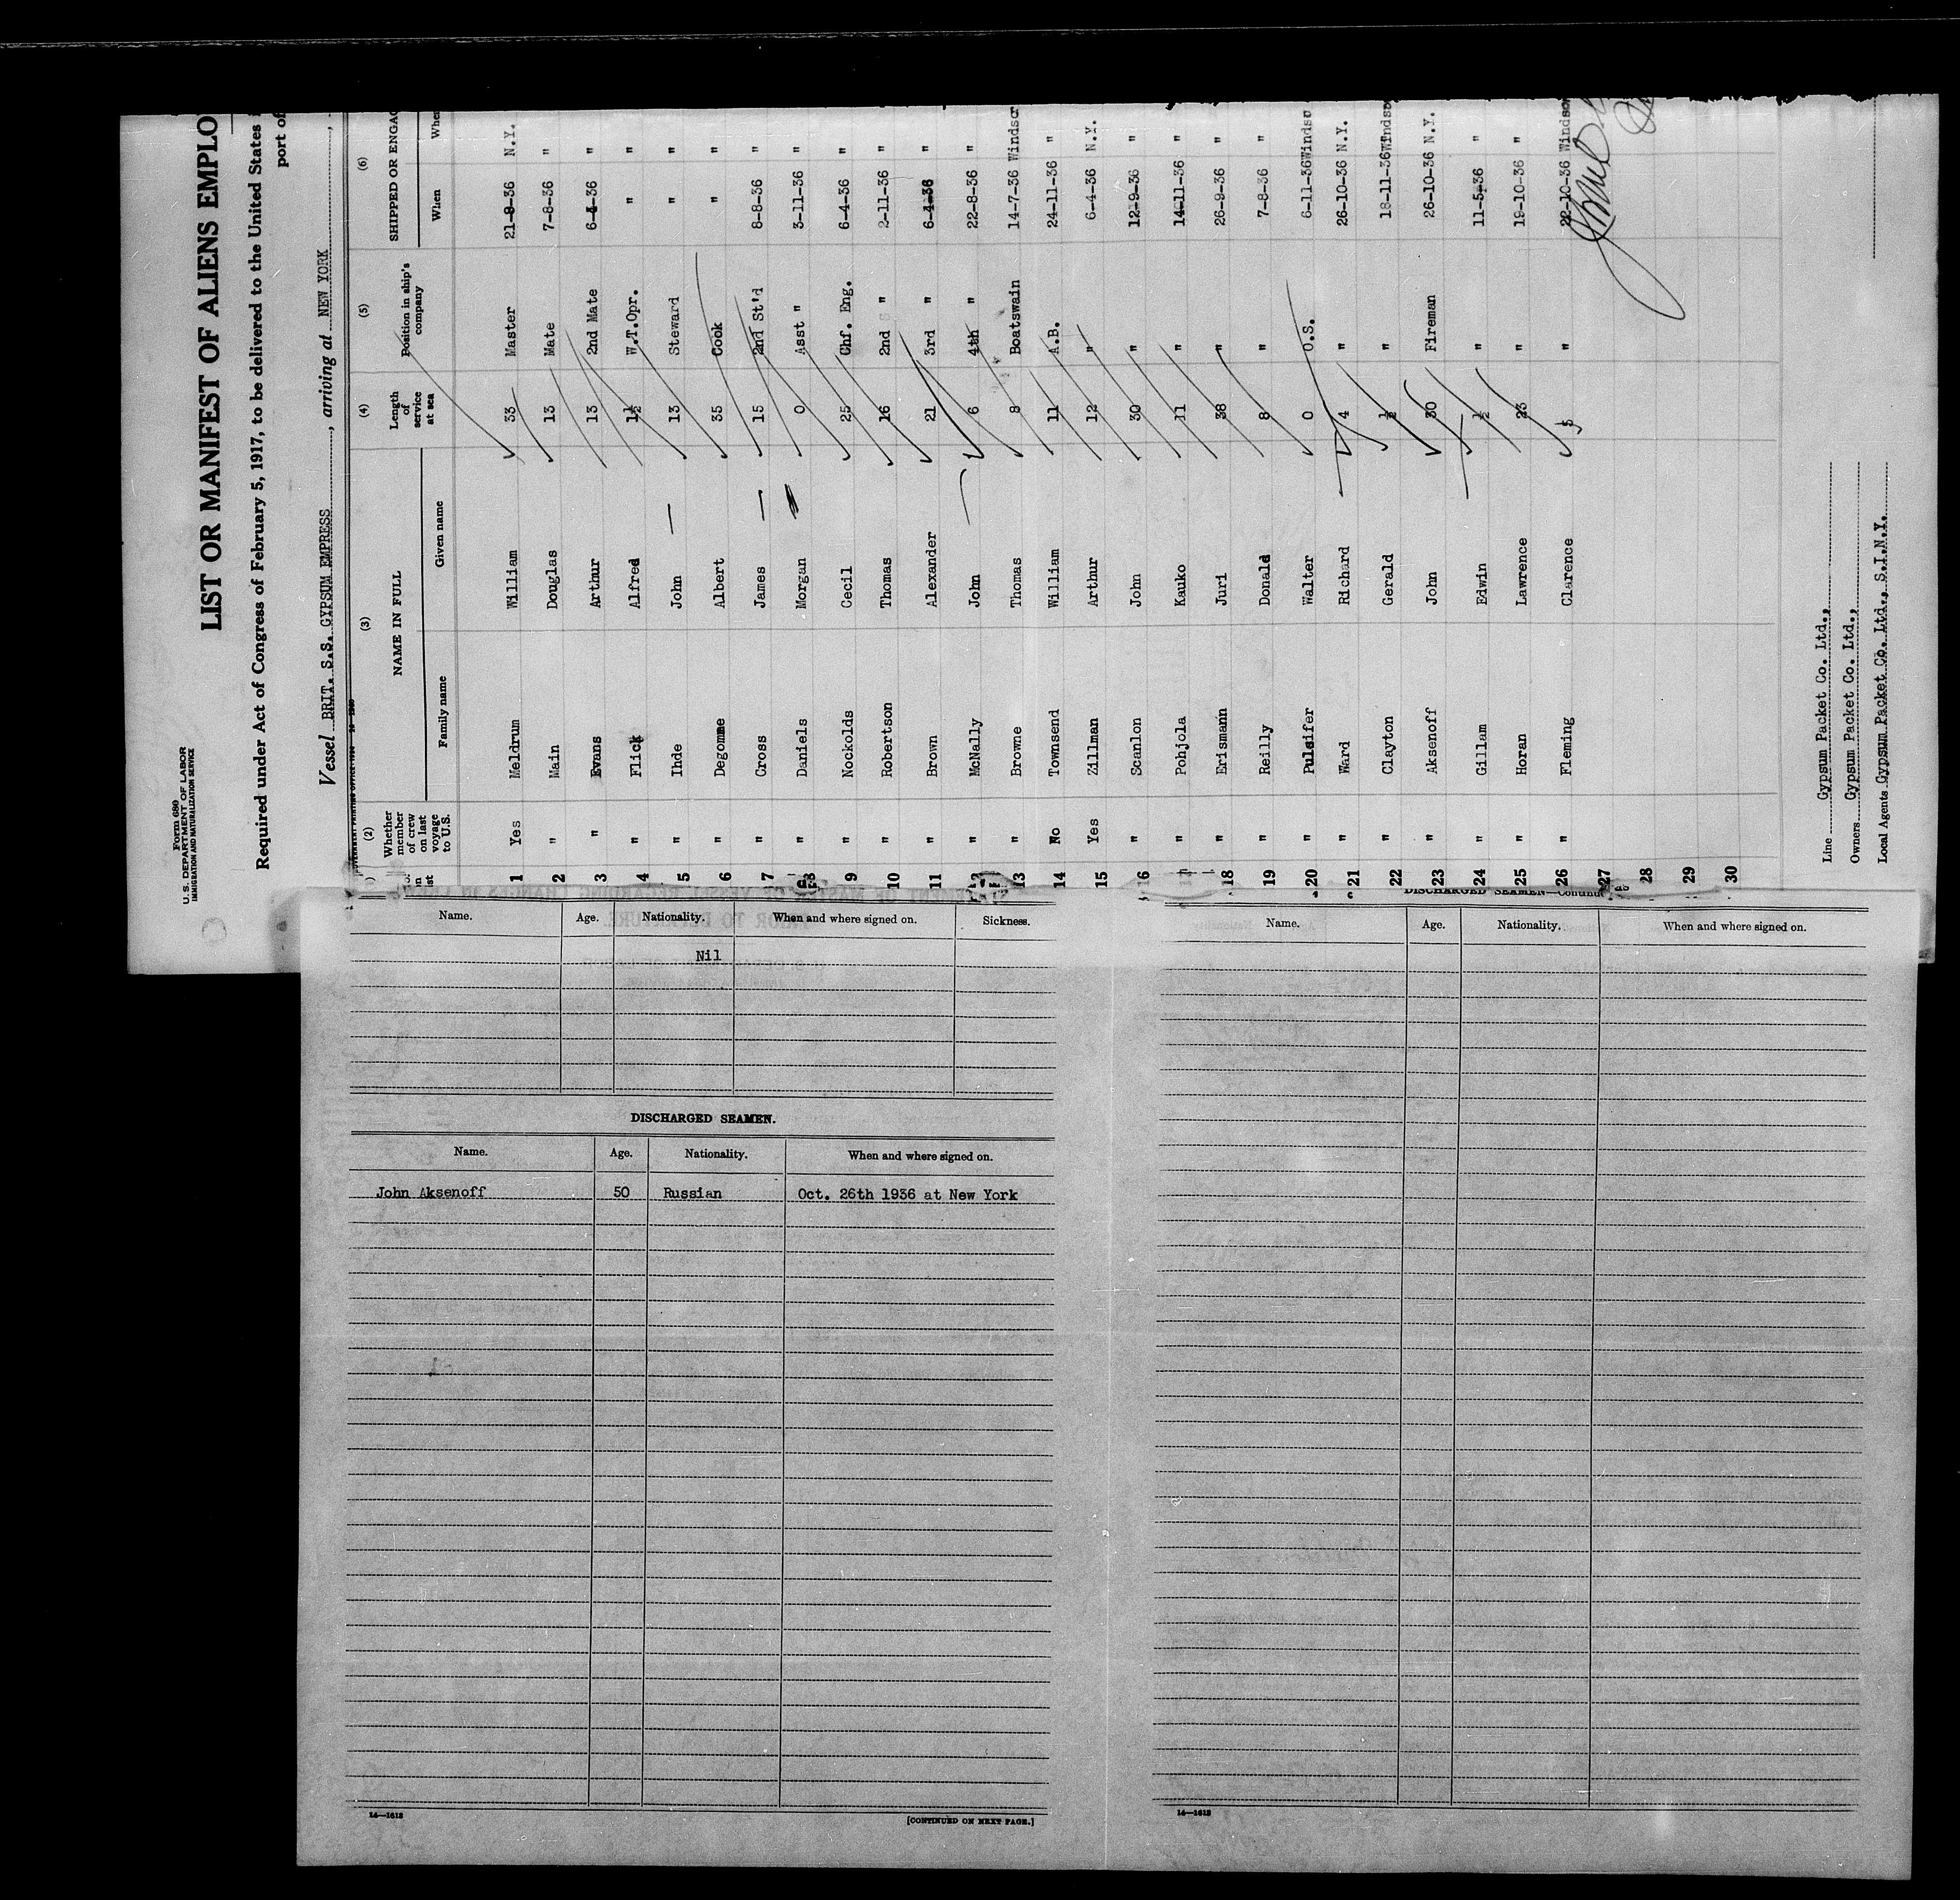 Form 680
U. S. DEPARTMENT OF LABOR
IMMIGRATION AND NATURALIZATION SERVICE
LIST OR MANIFEST OF ALIENS EMPLO
Required under Act of Congress of February 5, 1917, to be delivered to the United States
port of
Vessel BRIT. S.S. GYPSUM EMPRESS, arriving at NEW YORK,
(2) (3) (4) (5) (6)
Whether member of crew on last voyage to U.S. NAME IN FULL Length of service at sea Position in ship's company SHIPPED OR ENGAG
Family name Given name When Whe
1 Yes Meldrum William 33 Master 21-8-36 N.Y.
2 " Main Douglas 13 Mate 7-8-36 "
3 " Evans Arthur 13 2nd Mate 6-4-36 "
4 " Flick Alfred 1½ W.T.Opr. " "
5 " Ihde John 13 Steward " "
6 " Degomme Albert 35 Cook " "
7 " Cross James 15 2nd St'd 8-8-36 "
8 " Daniels Morgan 0 Asst " 3-11-36 "
9 " Nockolds Cecil 25 Chf. Eng. 6-4-36 "
10 " Robertson Thomas 16 2nd " 2-11-36 "
11 " Brown Alexander 21 3rd " 6-4-36 "
12 " McNally John 6 4th " 22-8-36 "
13 " Browne Thomas 8 Boatswain 14-7-36 Windsor
14 No Townsend William 11 A.B. 24-11-36 "
15 Yes Zillman Arthur 12 " 6-4-36 N.Y.
16 " Scanlon John 30 " 12-9-36 "
17 " Pohjola Kauko 11 " 14-11-36 "
18 " Erismann Juri 38 " 26-9-36 "
19 " Reilly Donald 8 " 7-8-36 "
20 " Pulsifer Walter 0 O.S. 6-11-36 Windso
21 " Ward Richard 4 " 26-10-36 N.Y.
22 " Clayton Gerald ½ " 18-11-36 Windso
23 " Aksenoff John 30 Fireman 26-10-36 N.Y.
24 " Gillam Edwin ½ " 11-5-36 "
25 " Horan Lawrence 23 " 19-10-36 "
26 " Fleming Clarence 5 " 22-10-36 Windsor
27
28
29
30
Line Gypsum Packet Co. Ltd.,
Owners Gypsum Packet Co. Ltd.,
Local Agents Gypsum Packet Co. Ltd., S.I.N.Y.
Name. Age. Nationality. When and where signed on. Sickness.
Nil
DISCHARGED SEAMEN.
Name. Age. Nationality. When and where signed on.
John Aksenoff 50 Russian Oct. 26th 1936 at New York
14—1613 [CONTINUED ON NEXT PAGE.]
DISCHARGED SEAMEN—Continued
Name. Age. Nationality. When and where signed on.
14—1613